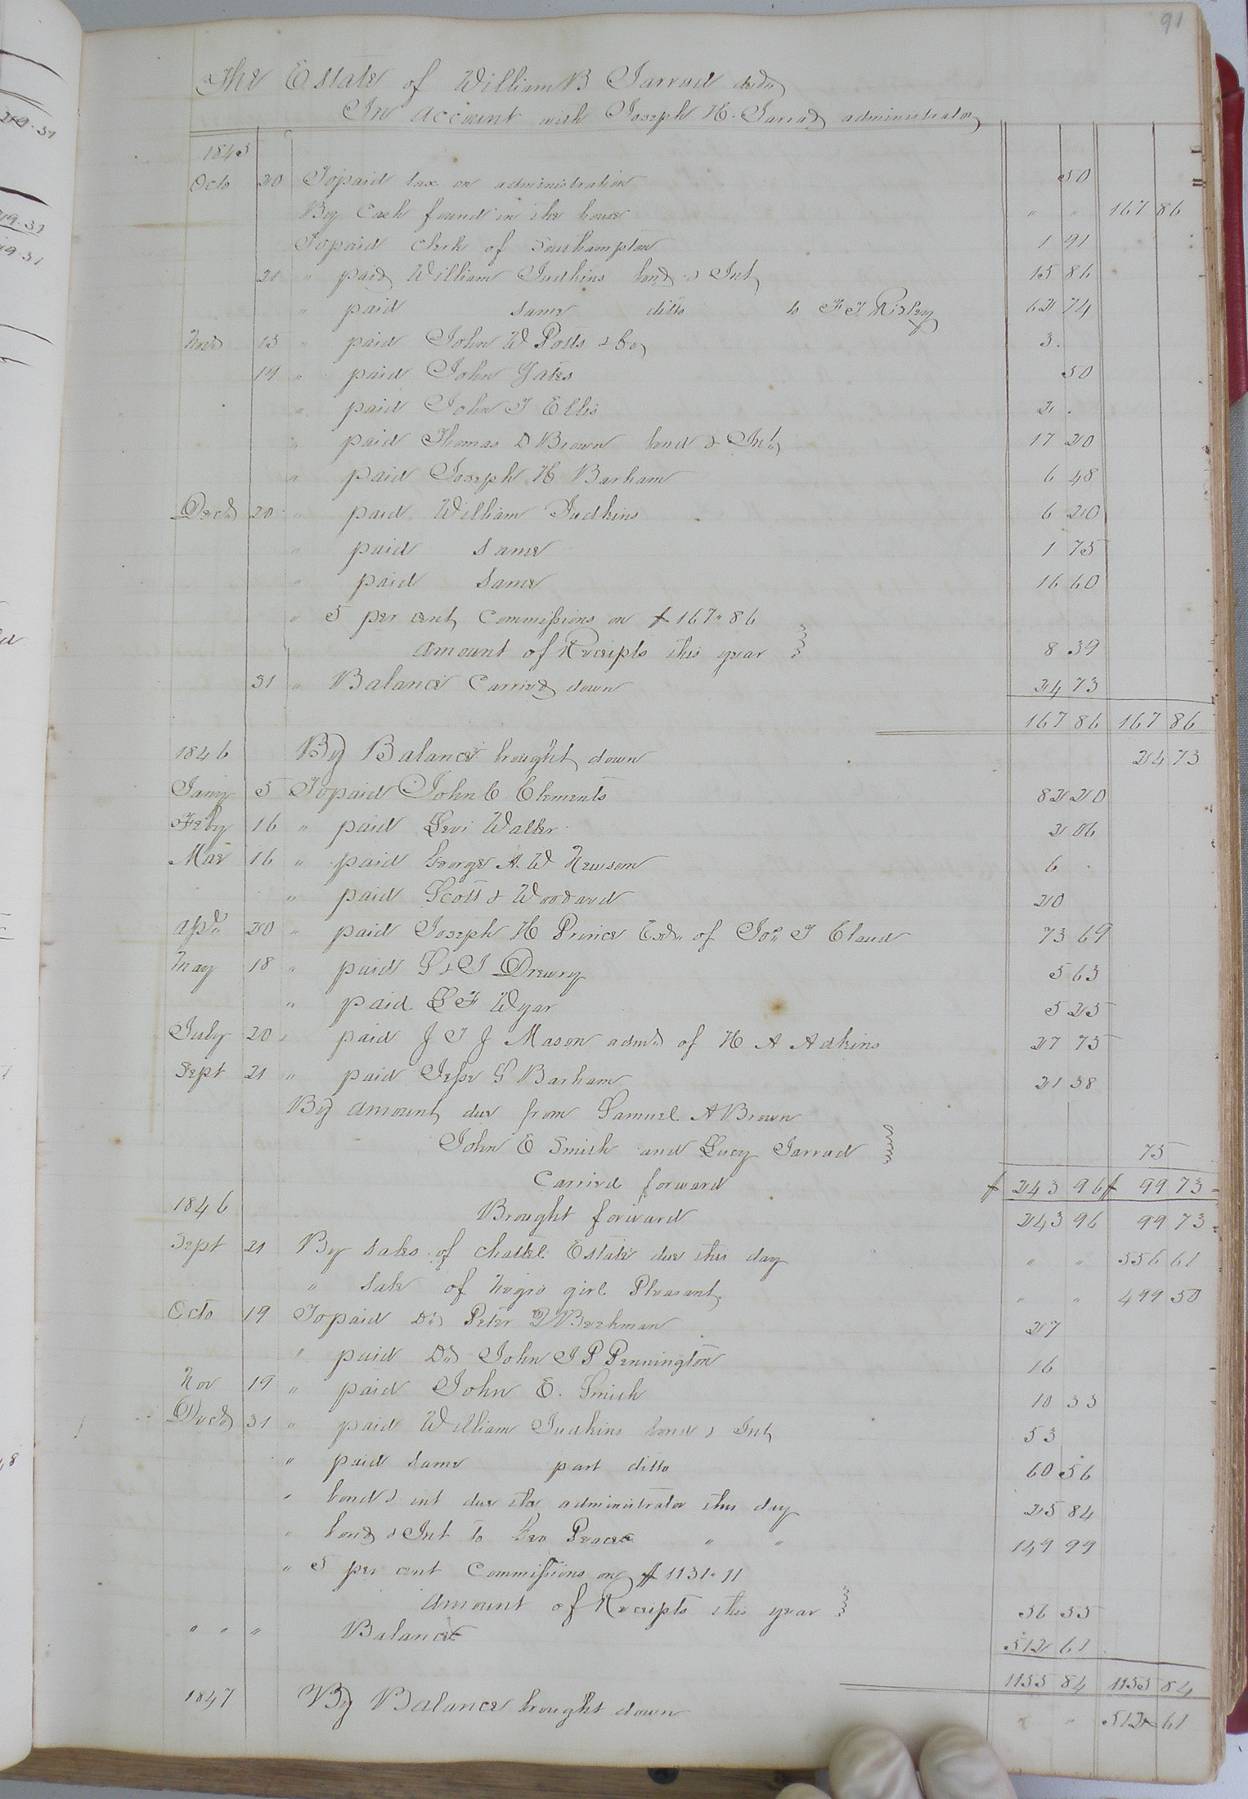 91
The Estate of William B Jarrad decd
In account with Joseph H. Jarrad administrator
1845
Octo 20 To paid tax on administration 50
By Cash found in the house " " 167 86
To paid Clerk of Southampton 1 91
21 " paid William Judkins bond & Int 15 86
" paid same ditto to 62 74
Novr 15 " paid John W Potts & Co 3.
17 " paid John Yates 50
" paid John T Ellis 2.
" paid Thomas D Brown bond & Int 17 20
" paid Joseph H Barham 6 48
Decr 20 " paid William Judkins 6 20
" paid Same 1 75
" paid Same 16 60
" 5 per cent Commissions on $167.86
Amount of Receipts this year 8 39
31 " Balance Carried down 24 73
167 86 167 86
1846 By Balance brought down 24 73
Jany 5 To paid John C Clements 82 20
Feby 16 " paid Levi Waller 2 06
Mar 16 " paid George A. W Newsom 6 .
" paid Scott & Woodard 20
Apl 20 " paid Joseph H Prince Exr of Jos T Claud 73 69
May 18 " paid S & J Drewry 5 63
" paid L F Wyar 5 25
July 20 " paid J T J Mason admr of H A Adkins 27 75
Sept 21 " paid Jesse S Barham 21 38
By Amount due from Samuel A Brown
John E Smith and Lucy Jarrad 75
Carried forward $ 243 96 $ 99 73
1846 Brought forward 243 96 99 73
Sept 21 By Sales of Chattel Estate due this day " " 556 61
" Sale of Negro girl Pleasant " " 499 50
Octo 19 To paid Dr Peter Beekman 27
" paid Dr John J P Pennington 16
Nov 19 " paid John E. Smith 10 33
Decr 31 " paid William Judkins bond & Int 53
" paid same part ditto 60 56
" bond & int due the administrator this day 25 84
" bond & Int to Geo " " 149 99
" 5 per cent Commissions on $1131.11
Amount of Receipts this year 56 55
" " " Balance 512 61
1155 84 1155 84
1847 By Balance brought down " " 512 61